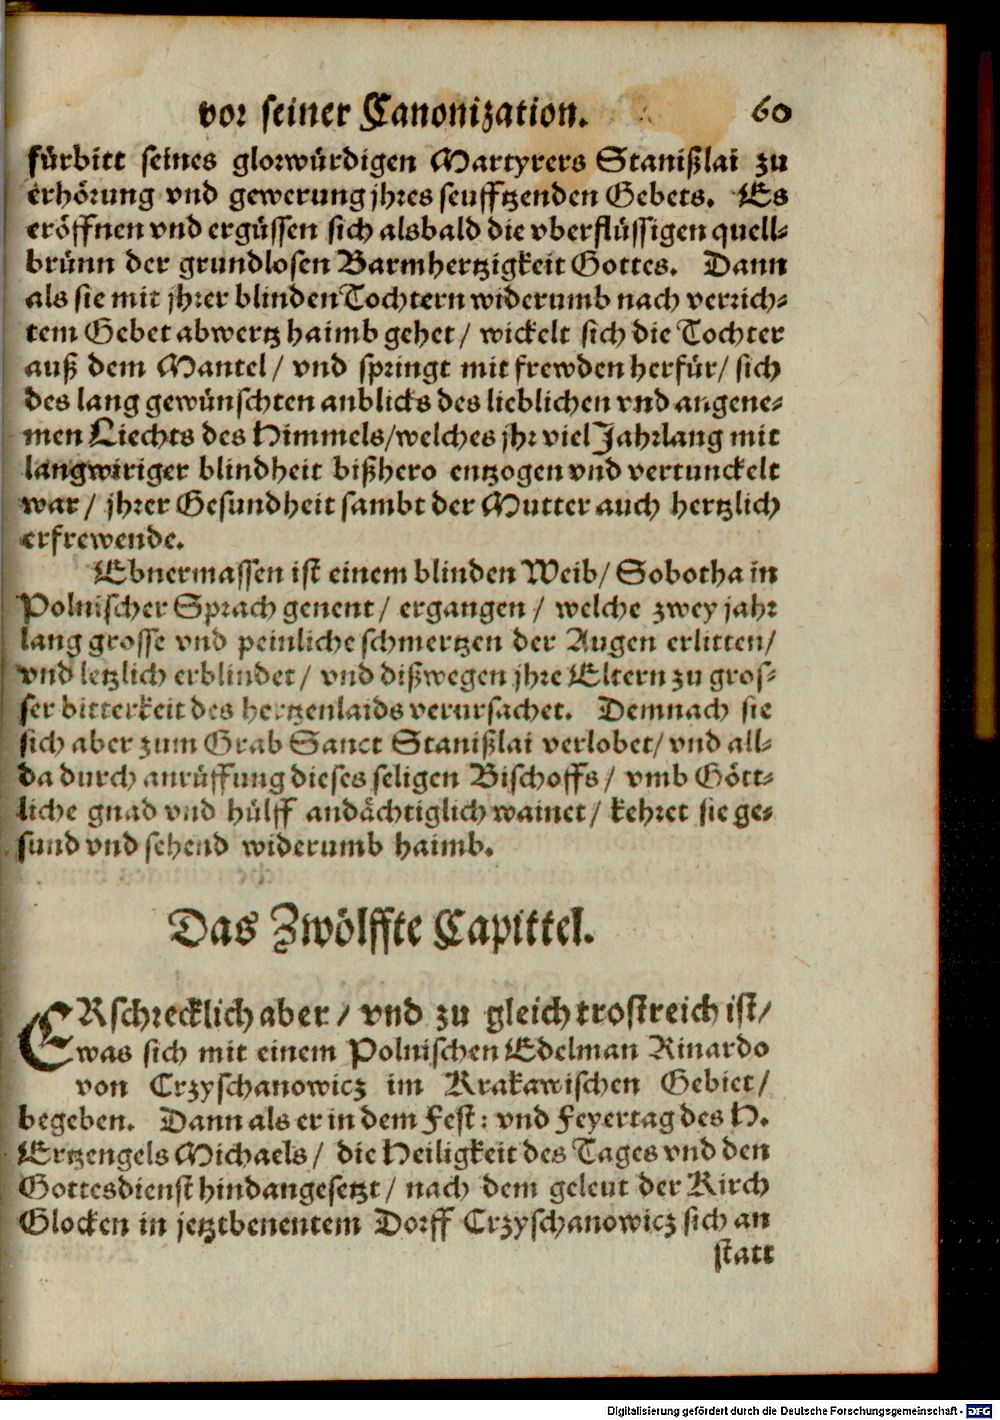 vor seiner Canonization. 60
fürbitt seines glorwürdigen Martyrers Stanißlai zu
erhörung vnd gewerung jhres seufftzenden Gebets. Es
eröffnen vnd ergüssen sich alsbald die vberflüssigen quell-
brünn der grundlosen Barmhertzigkeit Gottes. Dann
als sie mit jhrer blinden Tochtern widerumb nach verrich-
tem Gebet abwertz haimb gehet / wickelt sich die Tochter
auß dem Mantel / vnd springt mit frewden herfür / sich
des lang gewünschten anblicks des lieblichen vnd angene-
men Liechts des Himmels / welches jhr viel Jahr lang mit
langwiriger blindheit bißhero entzogen vnd vertunckelt
war / jhrer Gesundheit sambt der Mutter auch hertzlich
erfrewende.
Ebnermassen ist einem blinden Weib / Sobotha in
Polnischer Sprach genent / ergangen / welche zwey jahr
lang grosse vnd peinliche schmertzen der Augen erlitten /
vnd letzlich erblindet / vnd dißwegen jhre Eltern zu gros-
ser bitterkeit des hertzenlaids verursachet. Demnach sie
sich aber zum Grab Sanct Stanißlai verlobet / vnd all-
da durch anrüffung dieses seligen Bischoffs / vmb Gött-
liche gnad vnd hülff andächtiglich wainet / kehret sie ge-
sund vnd sehend widerumb haimb.
Das Zwölffte Capittel.
ERschrecklich aber / vnd zu gleich trostreich ist /
was sich mit einem Polnischen Edelman Rinardo
von Crzyschanowicz im Krakawischen Gebiet /
begeben. Dann als er in dem Fest: vnd Feyertag des H.
Ertzengels Michaels / die Heiligkeit des Tages vnd den
Gottesdienst hindangesetzt / nach dem geleut der Kirch
Glocken in jetztbenentem Dorff Crzyschanowicz sich an
statt
Digitalisierung gefördert durch die Deutsche Forschungsgemeinschaft - DFG